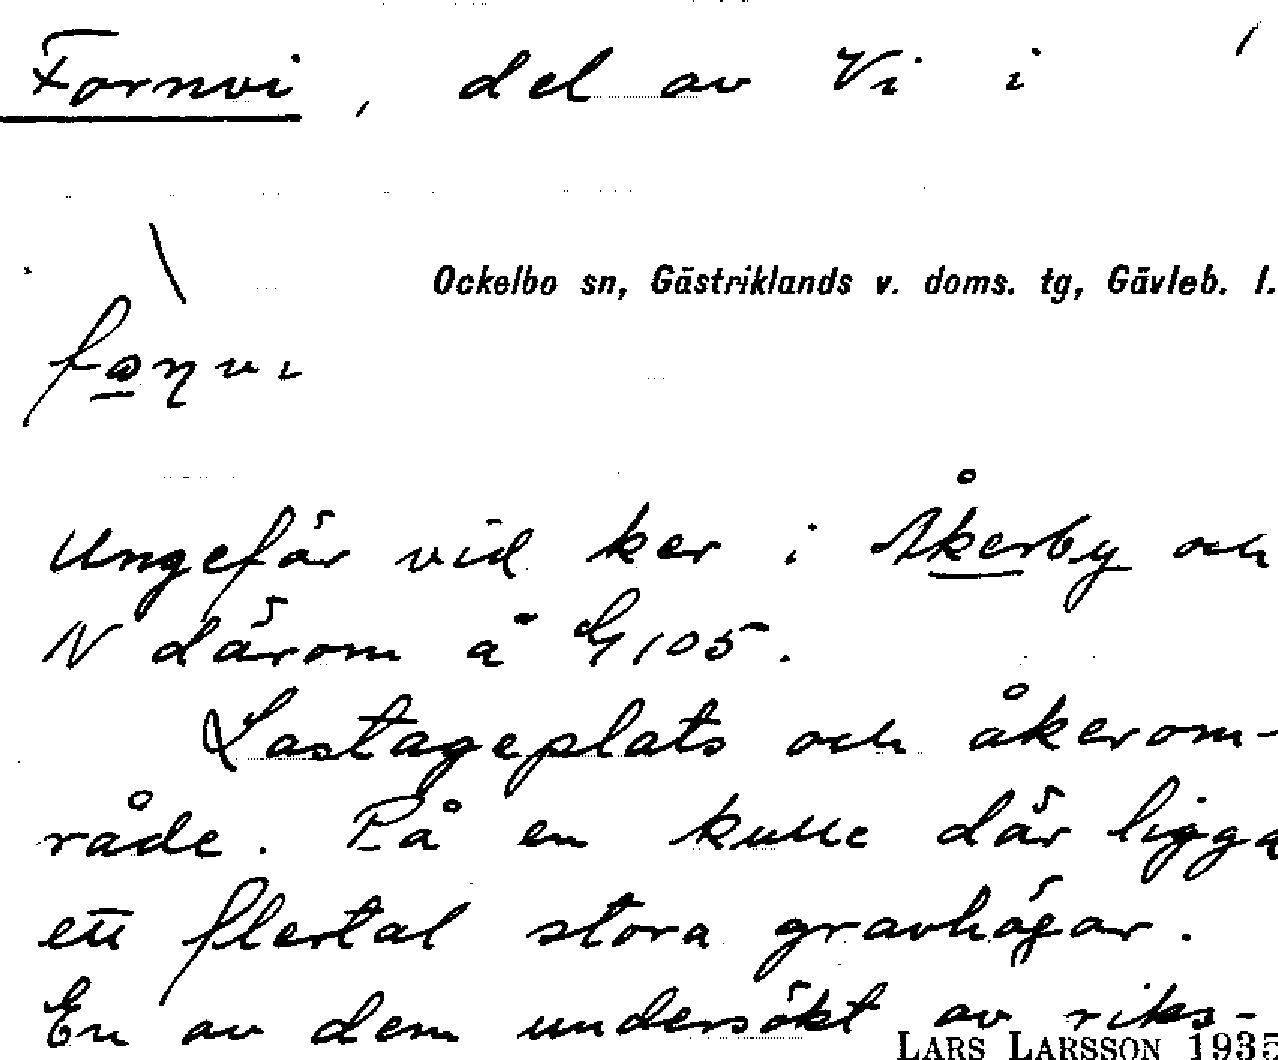 Fornvi, del av Vi i
Ockelbo sn, Gästriklands v. doms. tg, Gävleb. l.
Ungefär vid ker i Åkerby och
N därom å G105.
Lastageplats och åkerom-
råde. På en kulle där ligga
ett flertal stora gravhögar.
En av dem undersökt av riks-
LARS LARSSON 1935